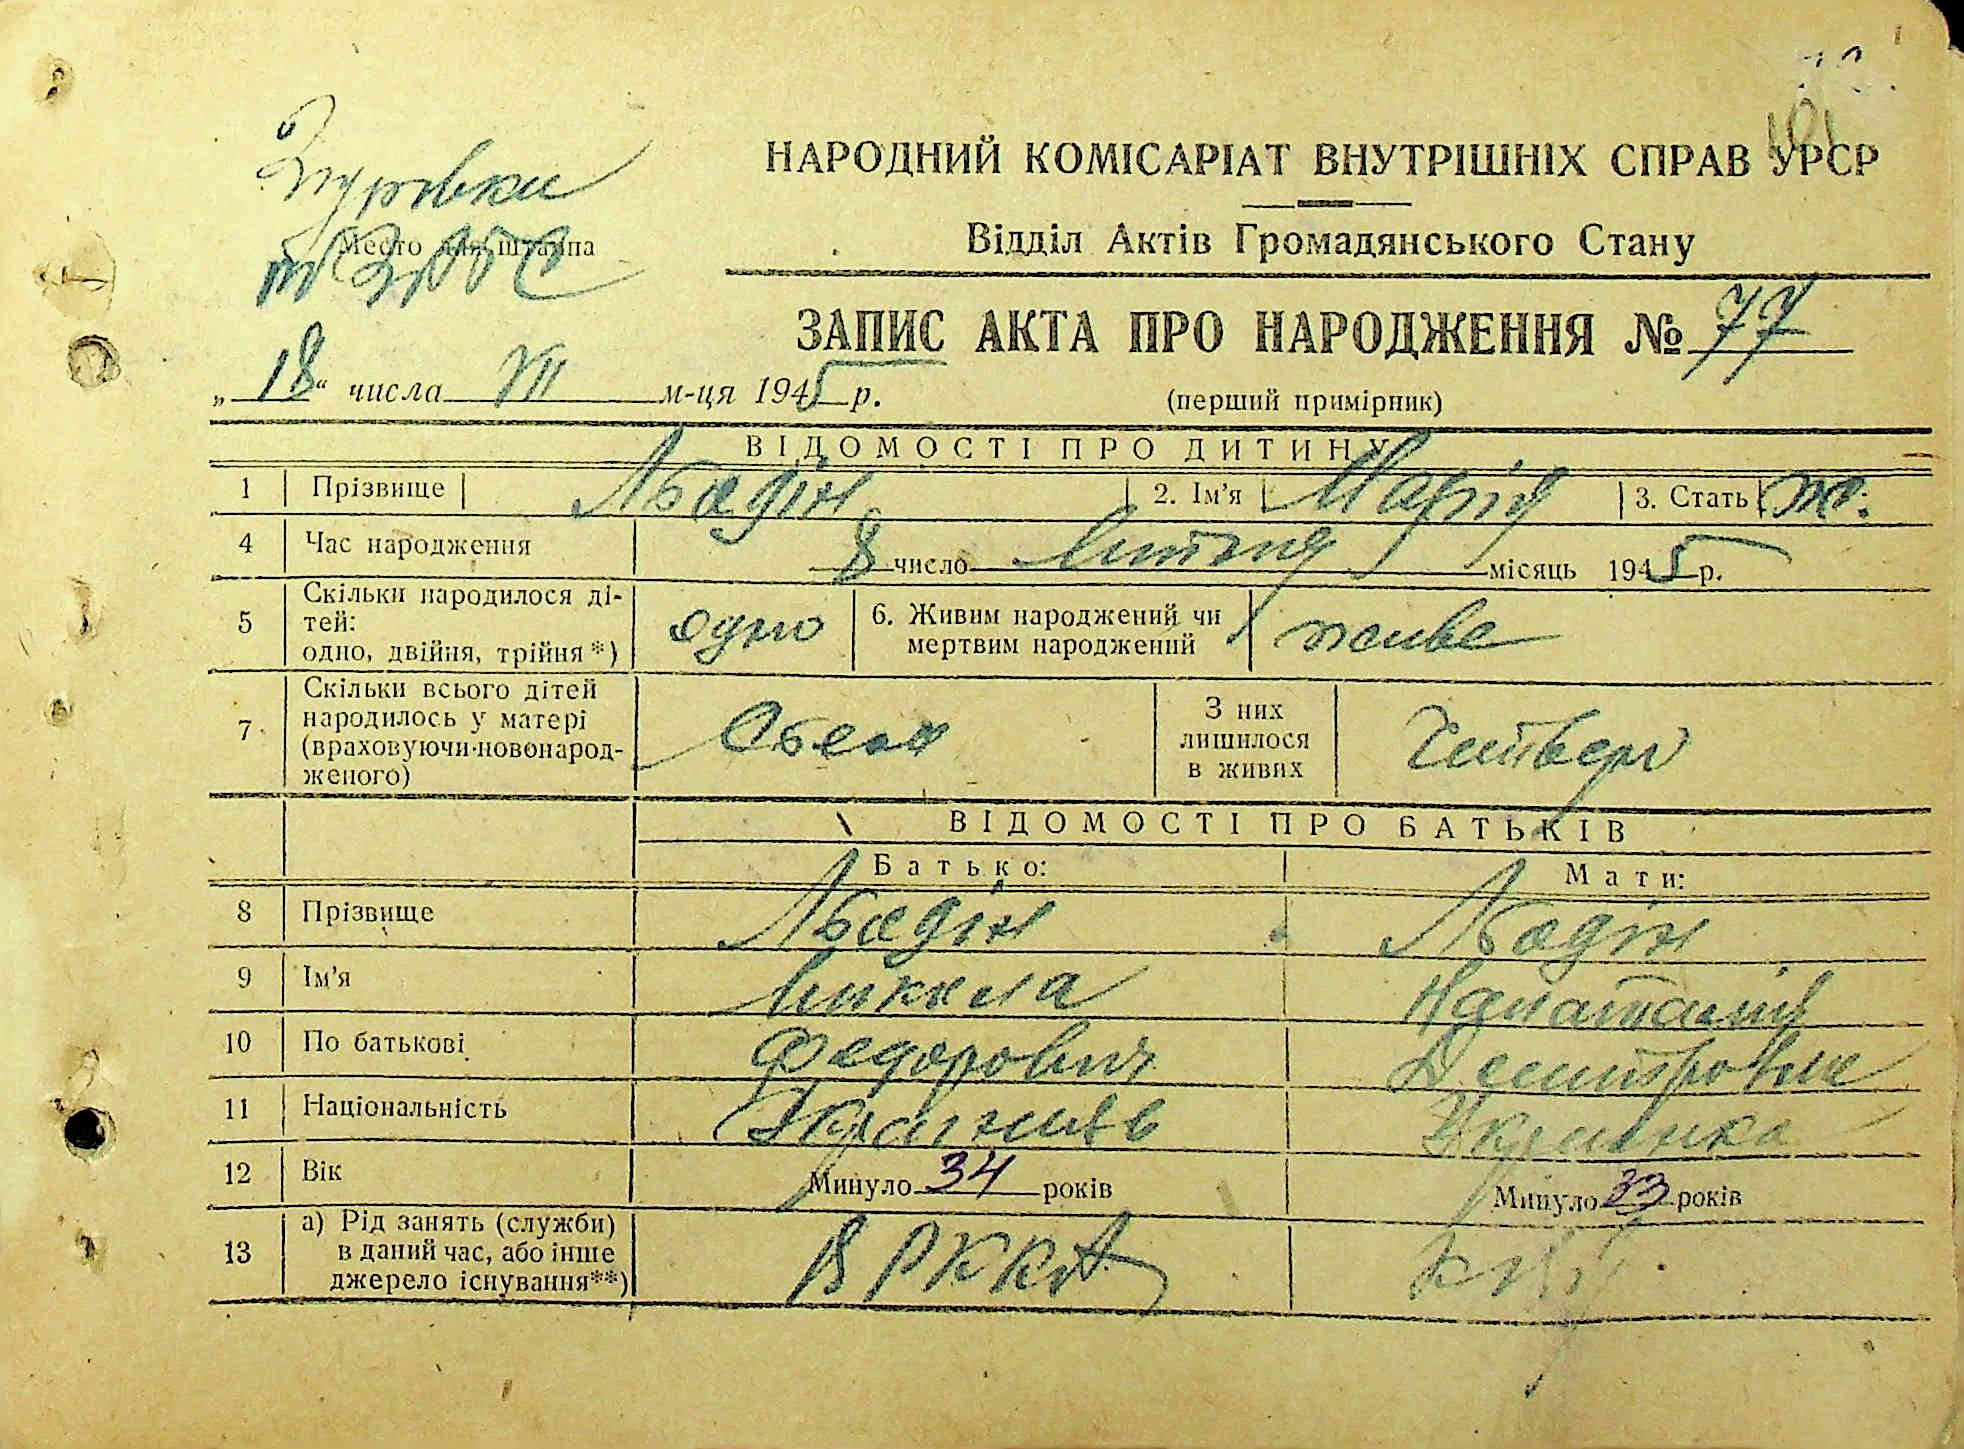 НАРОДНИЙ КОМІСАРІАТ ВНУТРІШНІХ СПРАВ УРСР
Место для штампа
Відділ Актів Громадянського Стану
ЗАПИС АКТА ПРО НАРОДЖЕННЯ № 77
„18“ числа VII м-ця 1945 р.
(перший примірник)
ВІДОМОСТІ ПРО ДИТИНУ
1 Прізвище 2. Ім’я Марія 3. Стать ж.
4 Час народження 8 число Липня місяць 1945 р.
5 Скільки народилося ді-
тей:
одно, двійня, трійня*) одно
6. Живим народжений чи
мертвим народжений живе
7 Скільки всього дітей
народилось у матері
(враховуючи новонарод-
женого)
З них
лишилося
в живих
ВІДОМОСТІ ПРО БАТЬКІВ
Батько: Мати:
8 Прізвище
9 Ім’я Микола
10 По батькові Федорович
11 Національність Українець Українка
12 Вік Минуло 34 років Минуло 33 років
13 а) Рід занять (служби)
в даний час, або інше
джерело існування**) В РККА